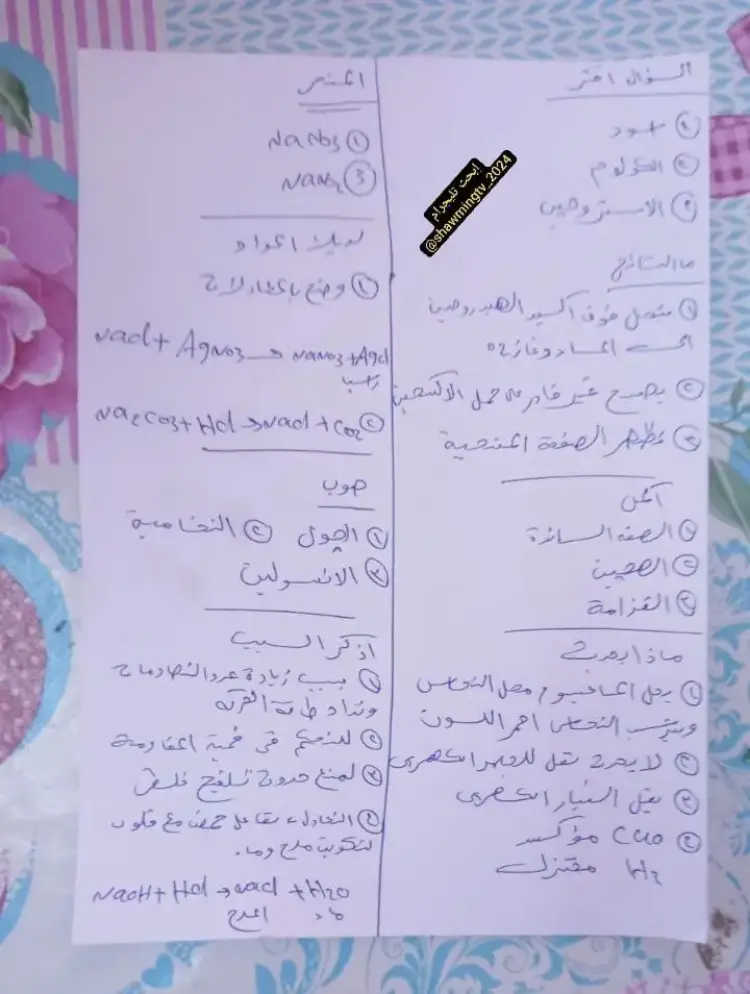 السؤال اختر
① اسود
② الكولوم
③ الاستروجين
ما النتائج
① ينحل فوق اكسيد الهيدروجين
الى الماء وغاز O2
② يصبح غير قادر على حمل الاكسجين
③ تظهر الصفة المتنحية
اكمل
① الصفة السائدة
② الجين
③ القزامة
ماذا يحدث
① يحل الماغنسيوم محل النحاس
ويترسب النحاس احمر اللون
② لا يحدث نقل للتيار الكهربى
③ يقل التيار الكهربى
④ CuO مؤكسد
H2 مختزل
ابحث تليجرام
@shawmingtv_2024
① NaNO3
③ NaNO2
لديك المواد
① وضح بالمعادلات
NaCl + AgNO3 → NaNO3 + AgCl
راسب
② Na2CO3 + HCl → NaCl + CO2
صوب
① الجول ② النخامية
③ الانسولين
اذكر السبب
① بسبب زيادة عدد التصادمات
وتزداد طاقة الحركة
② للتحكم فى قيمة المقاومة
③ لمنع حدوث تلقيح خلطى
④ التعادل، تفاعل حمض مع قلوى
لتكوين ملح وماء.
NaOH + HCl → NaCl + H2O
ماء الملح